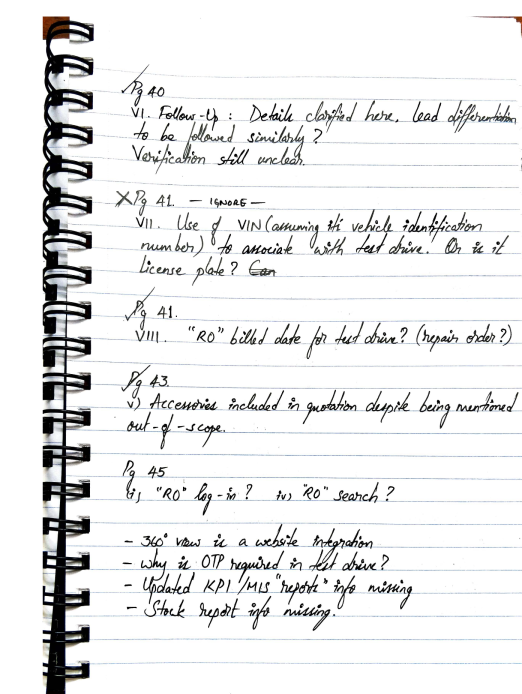 Pg 40
VI. Follow-Up : Details clarified here, lead differentiation
to be followed similarly?
Verification still unclear.
Pg 41. — IGNORE —
VII. Use of VIN (assuming it's vehicle identification
number) to associate with test drive. Or is it
License plate? Can
Pg 41.
VIII. "RO" billed date for test drive? (repair order?)
Pg 43.
v) Accessories included in quotation despite being mentioned
out-of-scope.
Pg 45
ii) "RO" log-in? iv) "RO" search?
- 360° view is a website integration
- why is OTP required in test drive?
- Updated KPI/MIS "reports" info missing
- Stock report info missing.